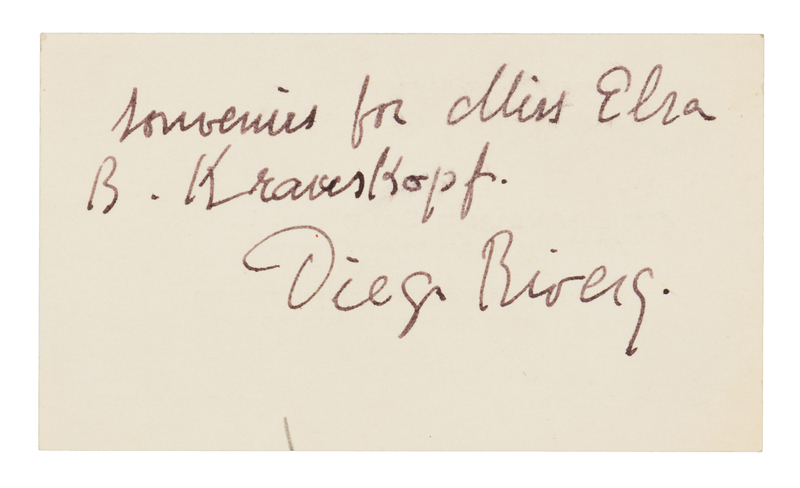 souvenirs for Miss Elsa
B. Krauskopf.
Diego Rivera.